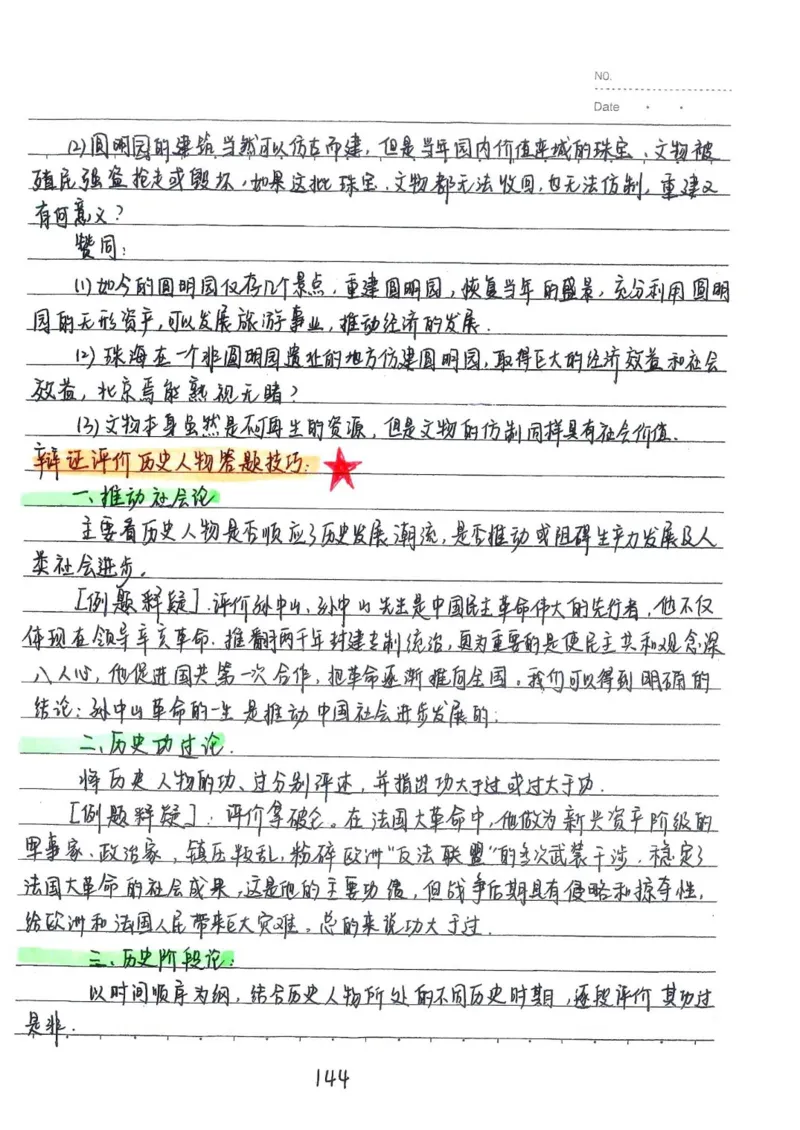 NO.
Date
(2)圆明园的建筑当然可以仿古而建，但是当年园内价值连城的珠宝、文物被
殖民强盗抢走或毁坏，如果这批珠宝、文物都无法收回，也无法仿制，重建又
有何意义？
赞同：
(1)如今的圆明园仅存几个景点，重建圆明园，恢复当年的盛景，充分利用圆明
园的无形资产，可以发展旅游事业，推动经济的发展．
(2)珠海在一个非圆明园遗址的地方仿建圆明园，取得巨大的经济效益和社会
效益，北京焉能熟视无睹？
(3)文物本身虽然是不可再生的资源，但是文物的仿制同样具有社会价值．
辩证评价历史人物答题技巧：
一、推动社会论
主要看历史人物是否顺应了历史发展潮流，是否推动或阻碍生产力发展及人
类社会进步．
［例题释疑］．评价孙中山、孙中山先生是中国民主革命伟大的先行者，他不仅
体现在领导辛亥革命．推翻两千年封建专制统治，更为重要的是使民主共和观念深
入人心，他促进国共第一次合作，把革命逐渐推向全国，我们可以得到明确的
结论：孙中山革命的一生是推动中国社会进步发展的；
二、历史功过论．
将历史人物的功、过分别评述，并指出功大于过或过大于功．
［例题释疑］：评价拿破仑。在法国大革命中，他做为新兴资产阶级的
军事家、政治家，镇压叛乱，粉碎欧洲“反法联盟”的多次武装干涉．稳定了
法国大革命的社会成果，这是他的主要功绩，但战争后期具有侵略和掠夺性，
给欧洲和法国人民带来巨大灾难。总的来说功大于过．
三、历史阶段论：
以时间顺序为纲，结合历史人物所处的不同历史时期，逐段评价其功过
是非．
144